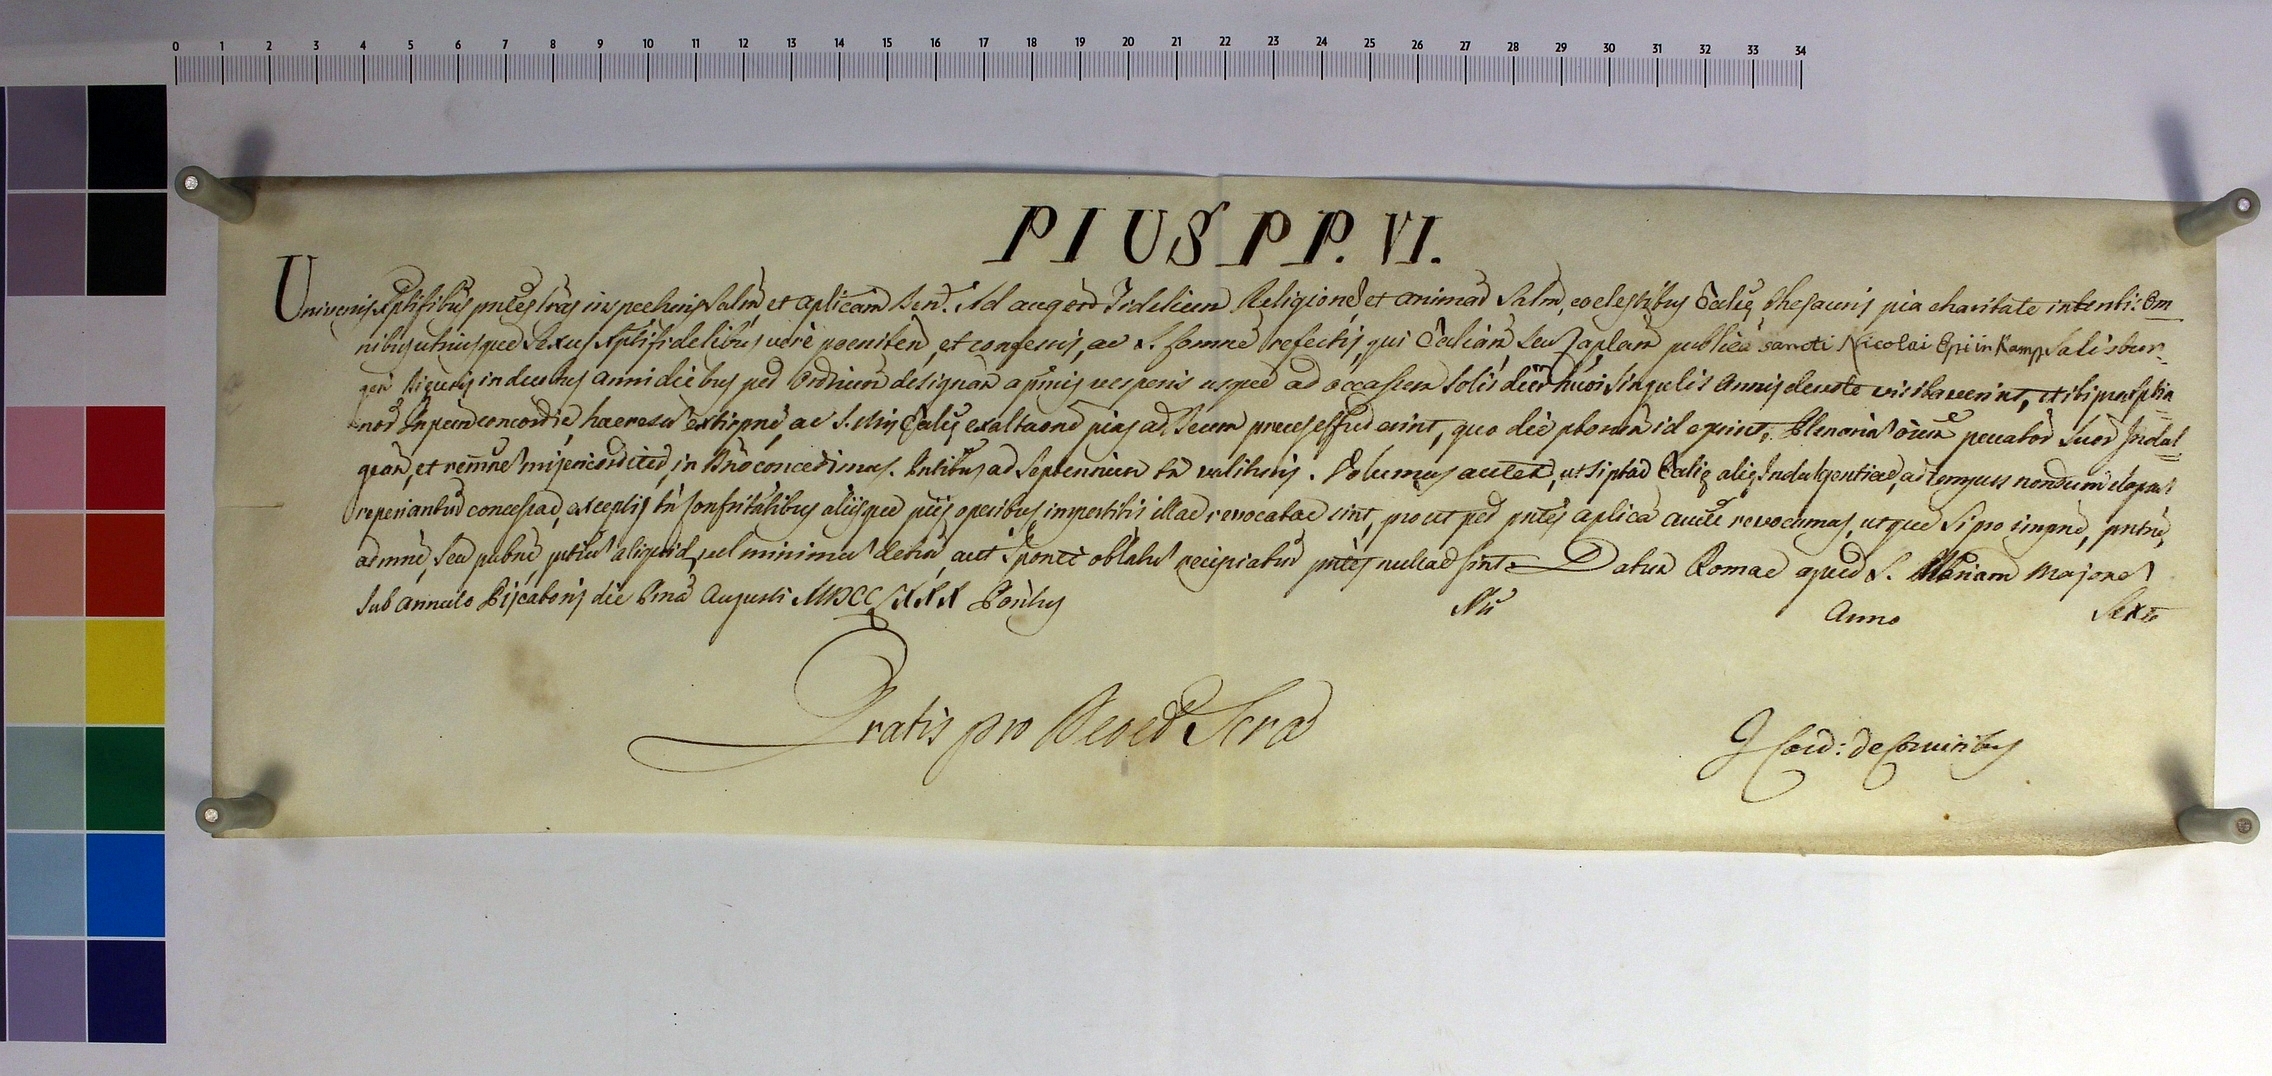 0 1 2 3 4 5 6 7 8 9 10 11 12 13 14 15 16 17 18 19 20 21 22 23 24 25 26 27 28 29 30 31 32 33 34
PIUS PP. VI.
Universis Xptifidelibus pntes lras inspecturis Salm, et aplicam Ben. Ad augend Fidelium Religione, et animar Salm, coelestibus Ecaliæ thesauris pia charitate intenti: Om
nibus utriusque Sexus Xptifidelibus vere poeniten, et confessis, ac S. Comne refectis, qui Ecaliam seu Caplam publica sancti Nicolai Epi in Kamp Salisbur-
gen in duobus anni diebus per Ordrium designan a primis vesperis usque ad occasum Solis dier huoi singulis Annis devote visitaverint, et ibi pro Xptia
nor Inpum concordia, haeresu extirpne, ac S. Mris Ecaliæ exaltaone pias ad Deum preces effuderint, quo die pbomn id egerint, Plenaria oium peccator suor Indul
gean, et remne misericorditer in Dno concedimus. Pntibus ad Septennium tn valituris. Volumus autem, ut si ptae Ecaliæ aliæ Indulgentiae, ad tempus nondum elapsu
reperiantur concessae, exceptis tn Confritatibus aliisque piis operibus impertitis illae revocatae sint, prout per pntes aplica aucte revocamus, utque si pro impne, pntne,
admne, seu pubne, pntiu aliquid, vel minimu detur, aut sponte oblatu recipiatur pntes nullae sint. Datum Romae apud S. Mariam Majorem
sub Annulo Piscatoris die Pma Augusti MDCCLXXX Pontus Nri Anno Sexto
Gratis pro Deo et Scra
J Card: de Comitibus